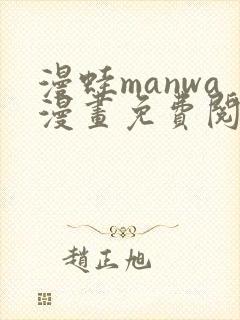 漫蛙manwa
漫畫免費閱
趙正旭